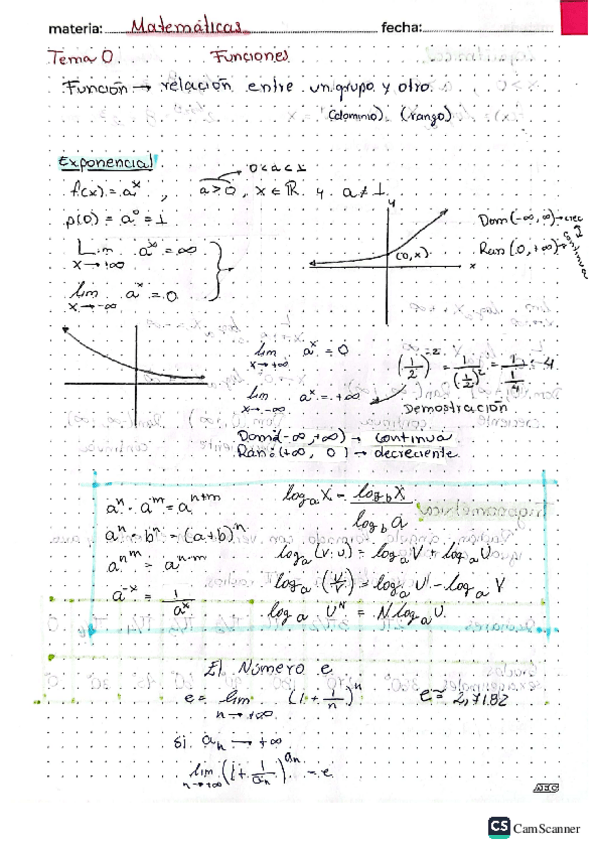 materia: Matemáticas fecha:
Tema 0. Funciones
Función → relación entre un grupo y otro.
(dominio) (rango)
Exponencial
0<a<1
f(x) = a^x, a>0, x ∈ ℝ y a ≠ 1
p(0) = a^0 = 1
Lim x→+∞ a^x = ∞
lim x→-∞ a^x = 0
y
(0,x)
x
Dom (-∞,∞) → crec
Ran (0,+∞) → continua
lim x→+∞ a^x = 0
(1/2)^-2 = 1/(1/2)^2 = 1/(1/4) = 4
lim x→-∞ a^x = +∞
Demostración
Dom: (-∞,+∞) → continua
Ran: (+∞, 0) → decreciente
a^n · a^m = a^n+m
a^n · b^n = (a+b)^n
a^n^m = a^n·m
a^-x = 1/a^x
log_a X = log_b X / log_b a
log_a (v·u) = log_a V + log_a U
log_a (U/V) = log_a U - log_a V
log_a U^N = N log_a U
El Número e
e = lim n→+∞ (1 + 1/n)^n e ≈ 2,7182
si a_n → +∞
lim n→+∞ (1 + 1/a_n)^a_n = e
AEG
CS CamScanner